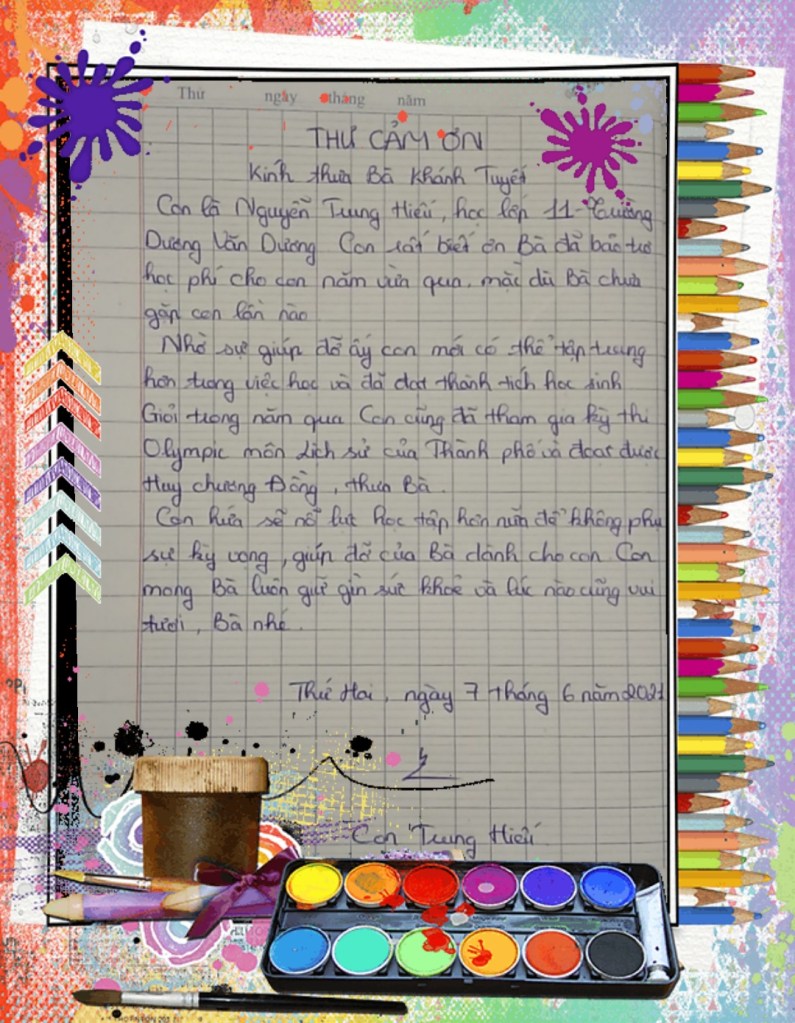 Thứ ngày tháng năm
THƯ CẢM ƠN
Kính thưa Bà Khánh Tuyết
Con là Nguyễn Trung Hiếu, học lớp 11 - Trường
Dương Văn Dương. Con rất biết ơn Bà đã bảo trợ
học phí cho con năm vừa qua. mặc dù Bà chưa
gặp con lần nào
Nhờ sự giúp đỡ ấy con mới có thể tập trung
hơn trong việc học và đã đạt thành tích học sinh
Giỏi trong năm qua. Con cũng đã tham gia kỳ thi
Olympic môn Lịch sử của Thành phố và đoạt được
Huy chương Đồng, thưa Bà.
Con hứa sẽ nỗ lực học tập hơn nữa để không phụ
sự kỳ vọng, giúp đỡ của Bà dành cho con. Con
mong Bà luôn giữ gìn sức khoẻ và lúc nào cũng vui
tươi, Bà nhé.
Thứ Hai, ngày 7 tháng 6 năm 2021
Con Trung Hiếu